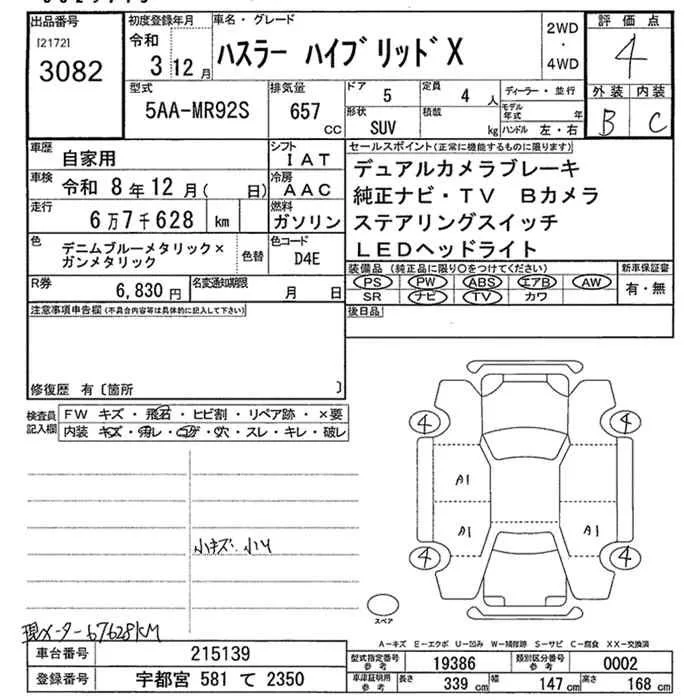 出品番号
[2172]
3082
初度登録年月
令和
3 12月
車名・グレード
ハスラー ハイブリッドX
2WD
・
4WD
評価点
4
外装 内装
B C
型式
5AA-MR92S
排気量
657
CC
ドア
5
定員
4 人
形状
SUV
積載
kg
ディーラー・並行
モデル年式 年
ハンドル 左・右
車歴
自家用
シフト
IAT
車検
令和 8年12月( 日)
冷房
AAC
走行
6万7千628 km
燃料
ガソリン
色
デニムブルーメタリック×
ガンメタリック
色替
色コード
D4E
R券
6,830 円
名変通知期限
月 日
セールスポイント(正常に機能するものに限ります)
デュアルカメラブレーキ
純正ナビ・TV Bカメラ
ステアリングスイッチ
LEDヘッドライト
装備品 (純正品に限り○をつけてください)
PS PW ABS エアB AW
SR ナビ TV カワ
新車保証書
有・無
後日品
注意事項申告欄(不具合内容等は具体的に記入して下さい)
修復歴 有〔箇所 〕
検査員
記入欄
FW キズ・飛石・ヒビ割・リペア跡・×要
内装 キズ・汚れ・コゲ・穴・スレ・キレ・破レ
小キズ・小凹
現メーター67628KM
4
4
A1
A1
A1
4
4
スペア
A-キズ E-エクボ U-凹み W-補修跡 S-サビ C-腐食 XX-交換済
車台番号
215139
登録番号
宇都宮 581 て 2350
型式指定番号
参考
19386
類別区分番号
参考
0002
車庫証明用
参考
長さ
339 cm
幅
147 cm
高さ
168 cm